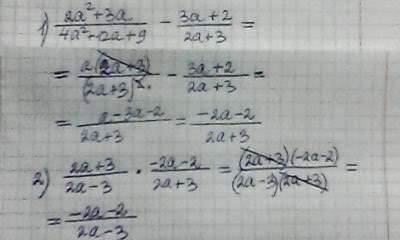 1) (2a²+3a)/(4a²+12a+9) − (3a+2)/(2a+3) =
= a(2a+3)/(2a+3)² − (3a+2)/(2a+3) =
= (a−3a−2)/(2a+3) = (−2a−2)/(2a+3)
2) (2a+3)/(2a−3) · (−2a−2)/(2a+3) = (2a+3)(−2a−2)/(2a−3)(2a+3) =
= (−2a−2)/(2a−3)